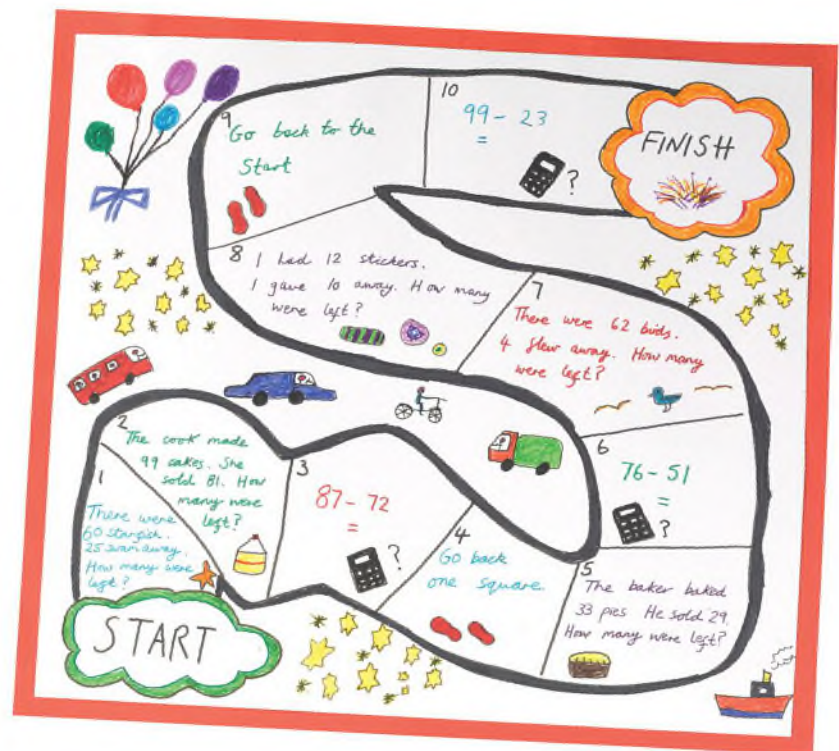 START
1
There were
60 starfish.
25 swam away.
How many were
left?
2
The cook made
99 cakes. She
sold 81. How
many were
left?
3
87 - 72
=
?
4
Go back
one square.
5
The baker baked
33 pies He sold 29.
How many were left?
6
76 - 51
=
?
7
There were 62 birds.
4 flew away. How many
were left?
8
I had 12 stickers.
I gave 10 away. How many
were left?
9
Go back to the
Start
10
99 - 23
=
?
FINISH